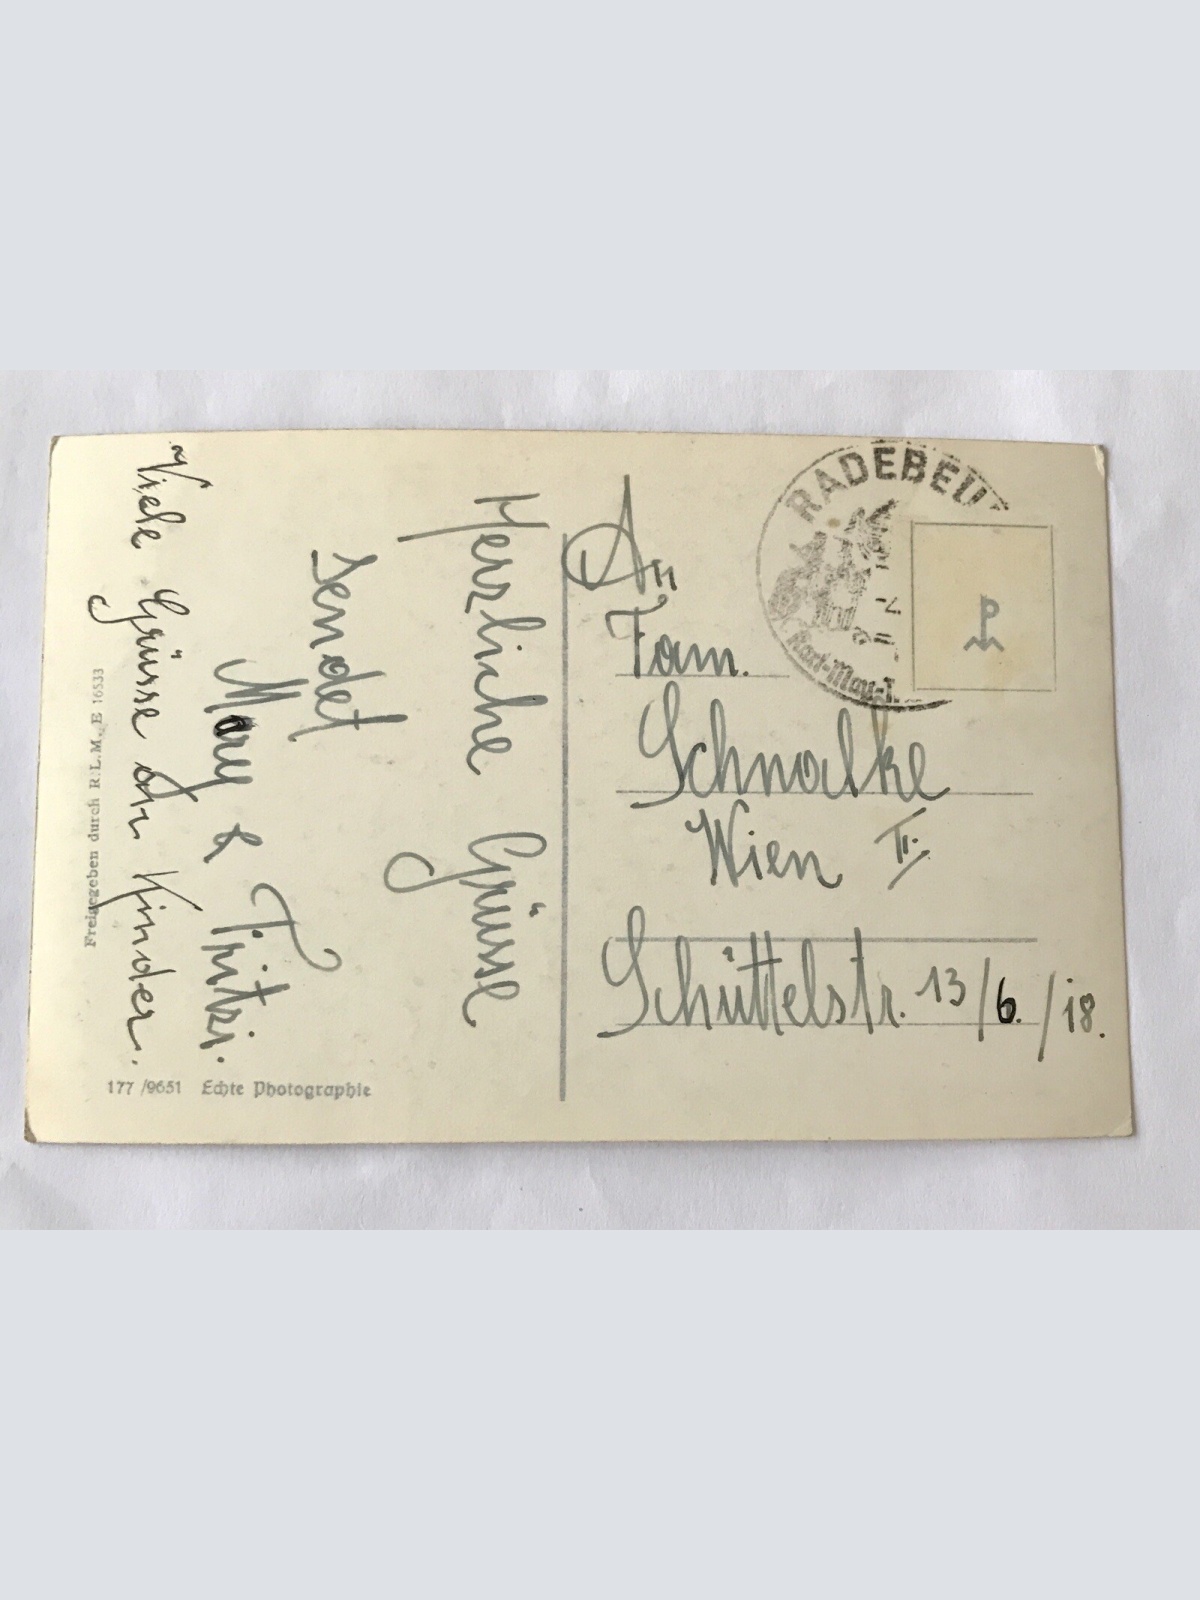 Herzliche Grüsse
sendet
Mary & Fritzi.
Viele Grüsse an Kinder.
Freigegeben durch R.L.M. E 16533
177/9651 Echte Photographie
An
Fam.
Schnalke
Wien II.
Schüttelstr. 13/6./18.
RADEBEU
Karl-May-
P